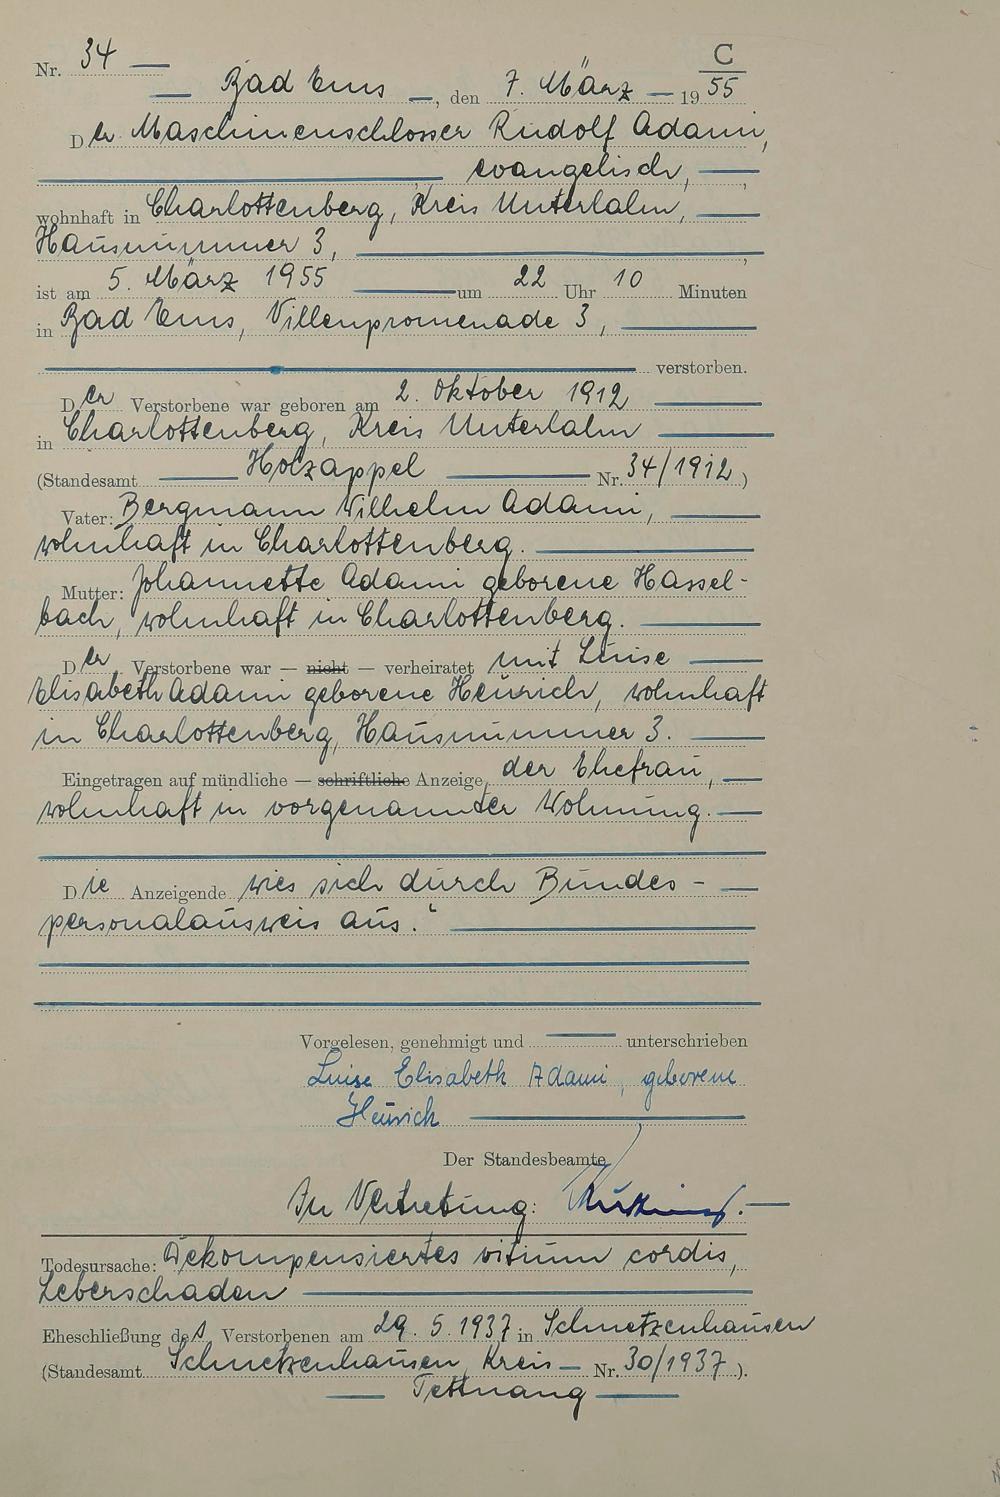 Nr. 34 —
C
— Bad Ems —, den 7. März — 19 55
Der Maschinenschlosser Rudolf Adami,
evangelisch, —
wohnhaft in Charlottenberg, Kreis Unterlahn, —
Hausnummer 3, —
ist am 5. März 1955 — um 22 Uhr 10 Minuten
in Bad Ems, Villenpromenade 3, —
— verstorben.
Der Verstorbene war geboren am 2. Oktober 1912 —
in Charlottenberg, Kreis Unterlahn —
(Standesamt — Holzappel — Nr. 34/1912)
Vater: Bergmann Wilhelm Adami, —
wohnhaft in Charlottenberg. —
Mutter: Johannette Adami geborene Hassel-
bach, wohnhaft in Charlottenberg. —
Der Verstorbene war — nicht — verheiratet mit Luise —
Elisabeth Adami geborene Heurich, wohnhaft
in Charlottenberg, Hausnummer 3. —
Eingetragen auf mündliche — schriftliche Anzeige der Ehefrau, —
wohnhaft in vorgenannter Wohnung. —
Die Anzeigende wies sich durch Bundes- —
personalausweis aus. —
Vorgelesen, genehmigt und — unterschrieben
Luise Elisabeth Adami, geborene
Heurich —
Der Standesbeamte
In Vertretung:
Todesursache: Dekompensiertes vitium cordis,
Leberschaden —
Eheschließung des Verstorbenen am 29.5.1937 in Schnetzenhausen
(Standesamt Schnetzenhausen, Kreis — Nr. 30/1937).
— Tettnang —